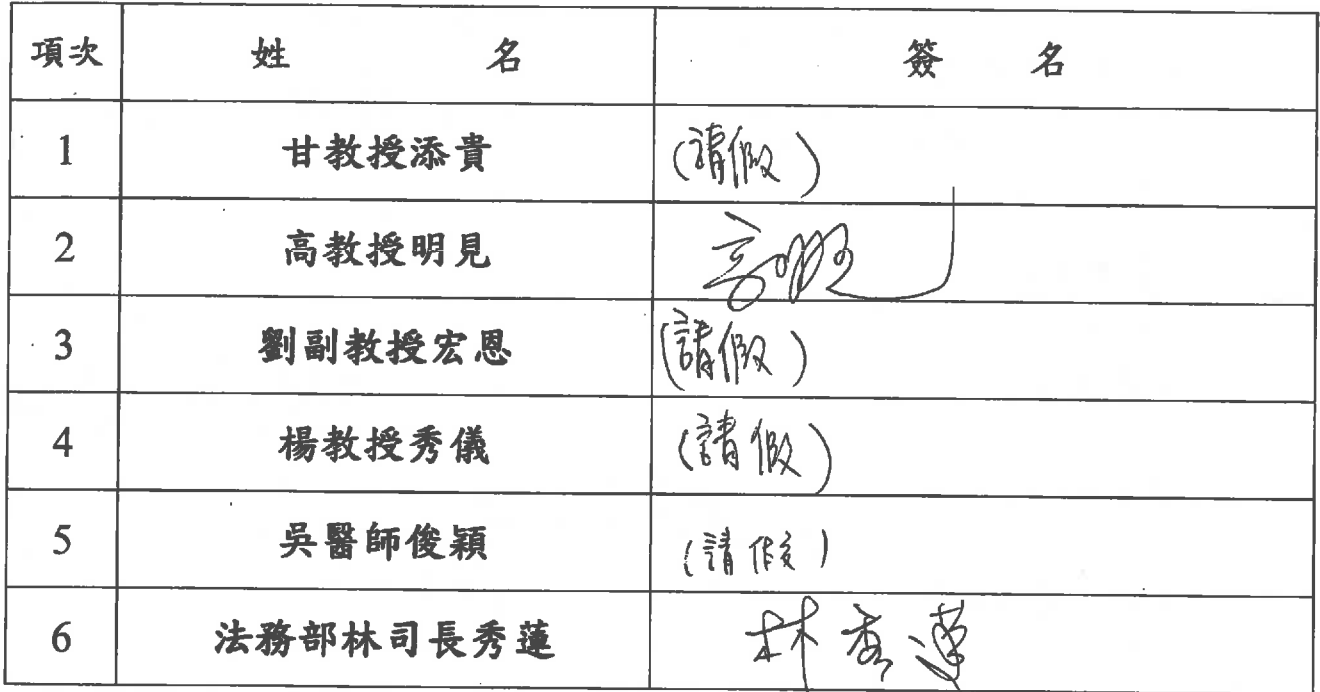 項次 姓 名 簽 名
1 甘教授添貴 (請假)
2 高教授明見 高明見
3 劉副教授宏恩 (請假)
4 楊教授秀儀 (請假)
5 吳醫師俊穎 (請假)
6 法務部林司長秀蓮 林秀蓮